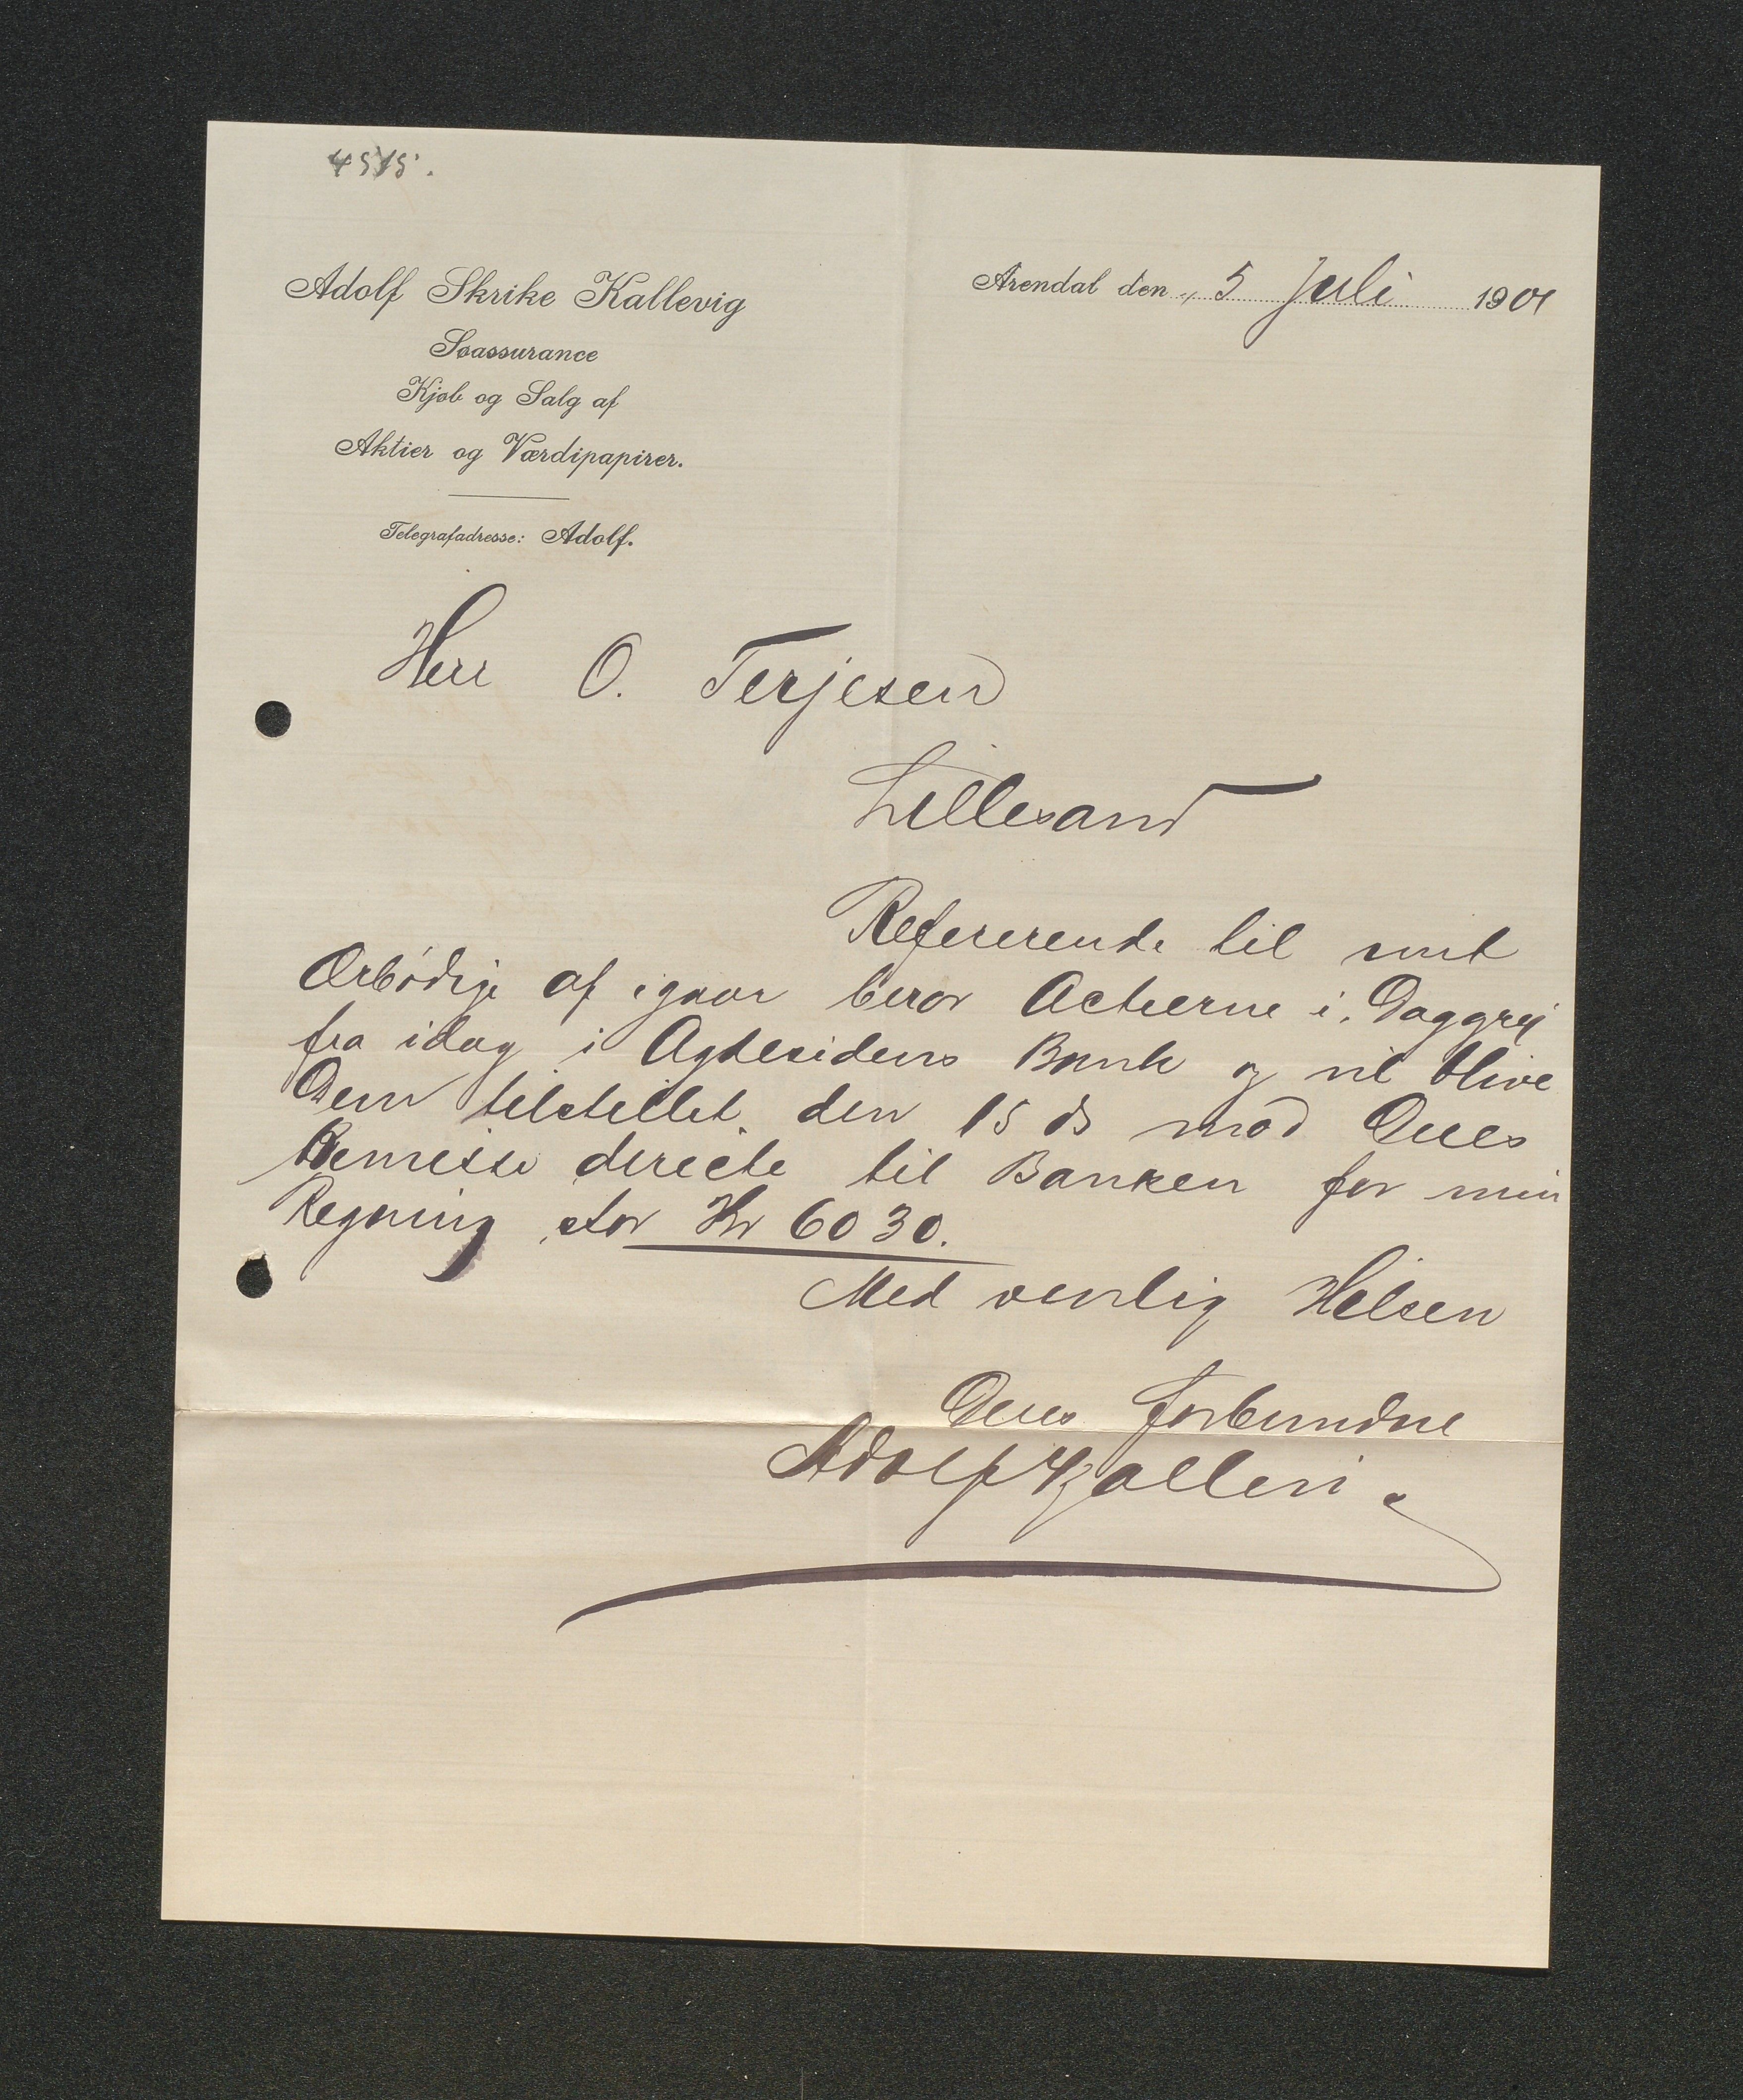 4515.
Adolf Skrike Kallevig
Søassurance
Kjøb og Salg af
Aktier og Værdipapirer.
Telegrafadresse: Adolf.
Arendal den 5 Juli 1901
Herr O. Terjesen
Lillesand
Refererende til mit
Ærbødige af igaar beror Actierne i. Daggry
fra idag i Agdesidens Bank og vil blive
Dem tilstillet den 15 ds mod Deres
Remisse directe til Banken for min
Regning, stor Kr 6030.
Med venlig Hilsen
Deres forbundne
Adolf Kallevi